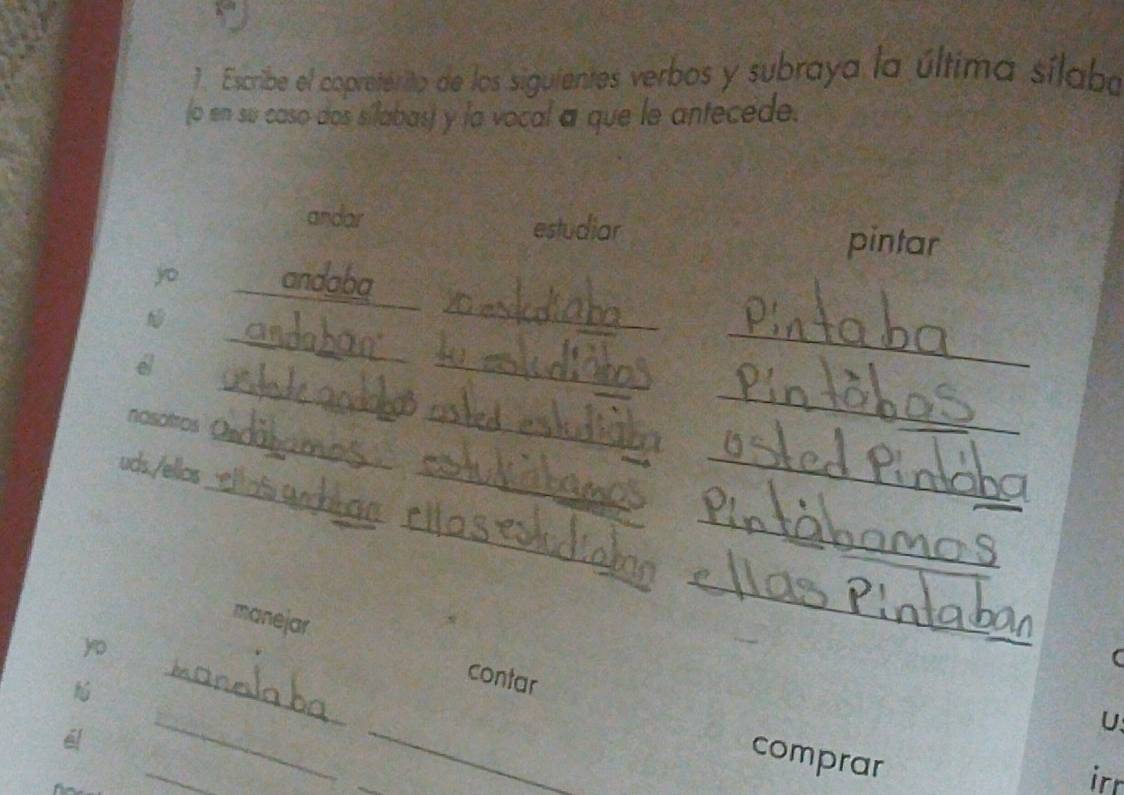 1. Escribe el copretérito de los siguientes verbos y subraya la última sílaba
(o en su caso dos sílabas) y la vocal a que le antecede.
andar estudiar pintar
yo andaba yo estudiaba Pintaba
tú andaban tu estudiabas Pintabas
él andabas usted estudiaba usted Pintaba
nosotros andabamos estudiabamos Pintabamos
uds./ellos ellas estudiaban ellas Pintaban
manejar contar comprar
yo
tú
él